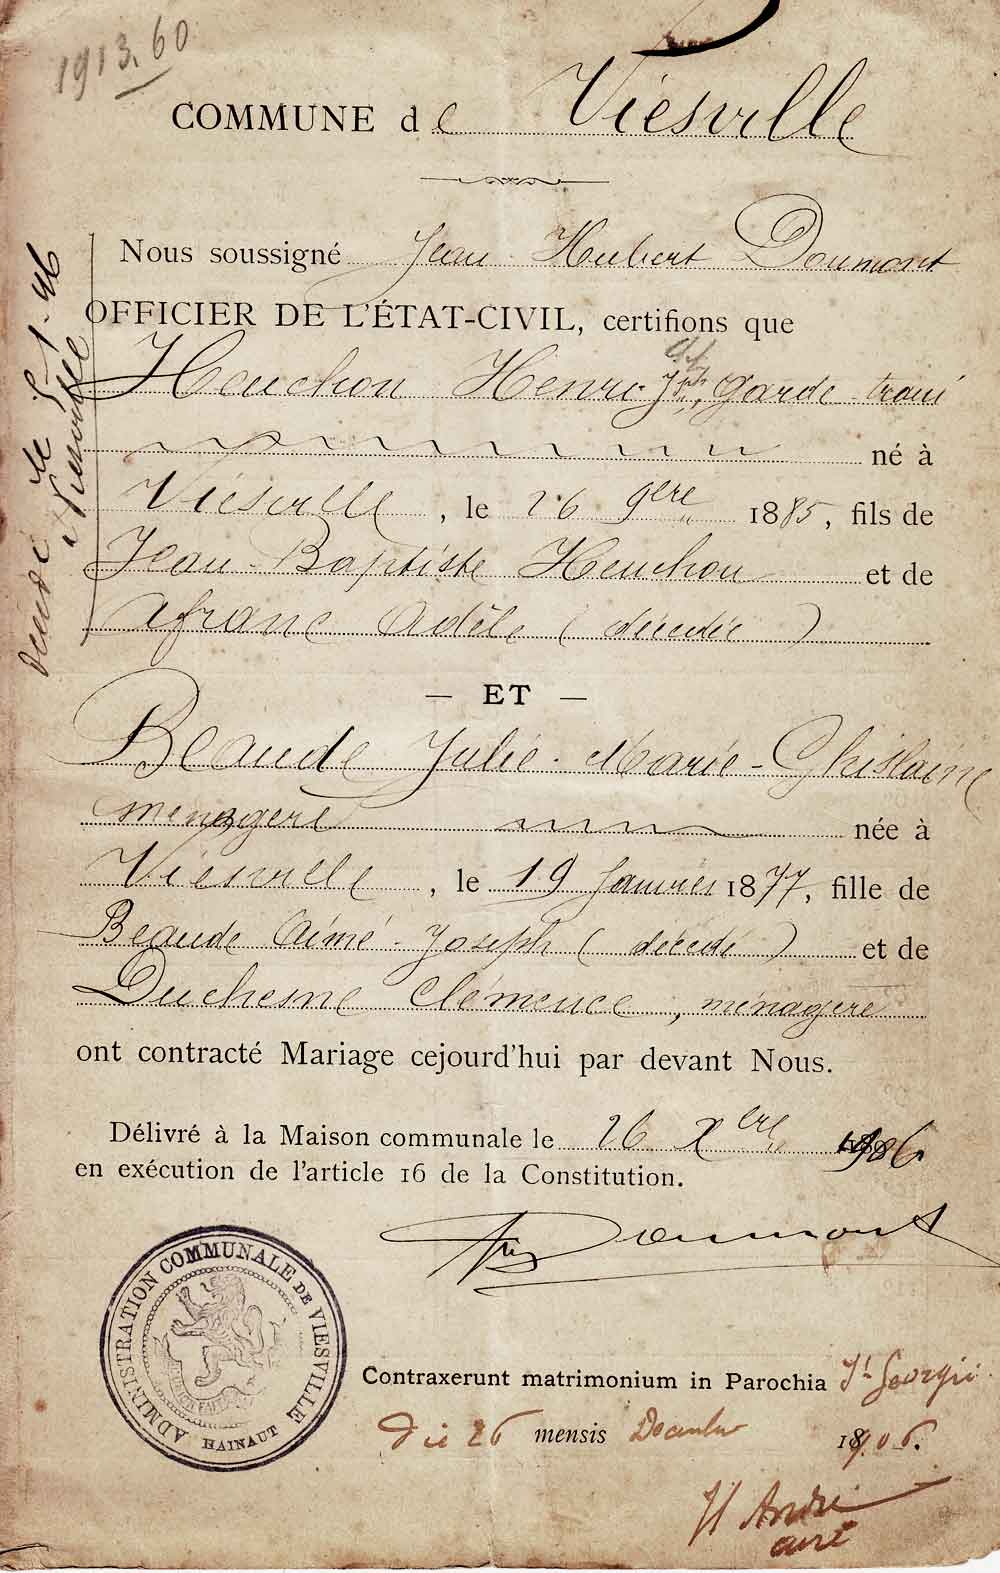 1913.60
COMMUNE de Viesville
Nous soussigné Jean Hubert Doumont
OFFICIER DE L'ÉTAT-CIVIL, certifions que
Houchon Henri Jph, garde-
né à
Viesville, le 26 9bre 1885, fils de
Jean-Baptiste Houchon et de
Afranc Adèle (décédée)
— ET —
Beaude Julie-Marie-Ghislaine
ménagère née à
Viesville, le 19 Janvier 1877, fille de
Beaude Aimé-Joseph (décédé) et de
Duchesne Clémence, ménagère
ont contracté Mariage cejourd'hui par devant Nous.
Délivré à la Maison communale le 26 Xbre 1906.
en exécution de l'article 16 de la Constitution.
Doumont
ADMINISTRATION COMMUNALE DE VIESVILLE
HAINAUT
Contraxerunt matrimonium in Parochia St Georgii
die 26 mensis Decembr 1906.
H André
curé
décédé le 5-1-46
Viesville